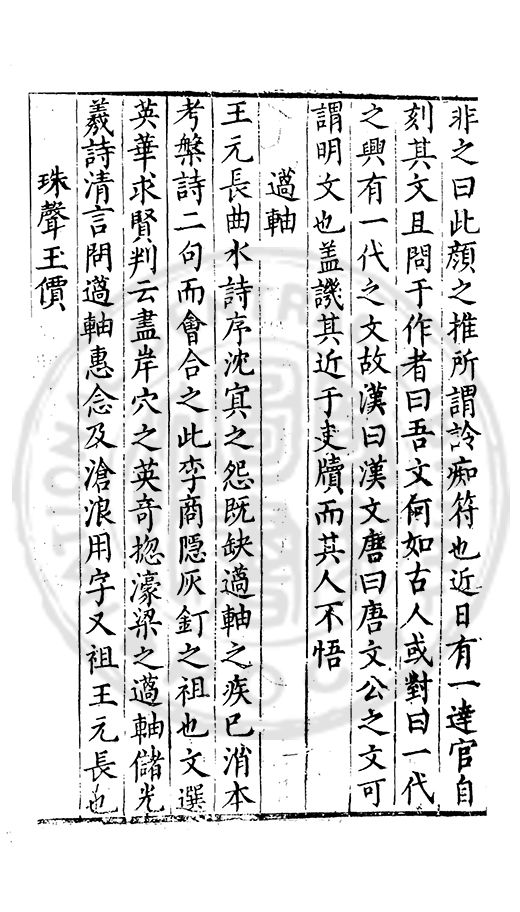 非之曰此顏之推所謂詅痴符也近日有一達官自
刻其文且問于作者曰吾文何如古人或對曰一代
之興有一代之文故漢曰漢文唐曰唐文公之文可
謂明文也盖譏其近于吏牘而其人不悟
薖軸
王元長曲水詩序沈冥之怨既缺薖軸之疾已消本
考槃詩二句而會合之此李商隠灰釘之祖也文選
英華求賢判云盡岸穴之英奇揔濠梁之薖軸儲光
羲詩清言問薖軸惠念及滄浪用字又祖王元長也
珠聲玉價